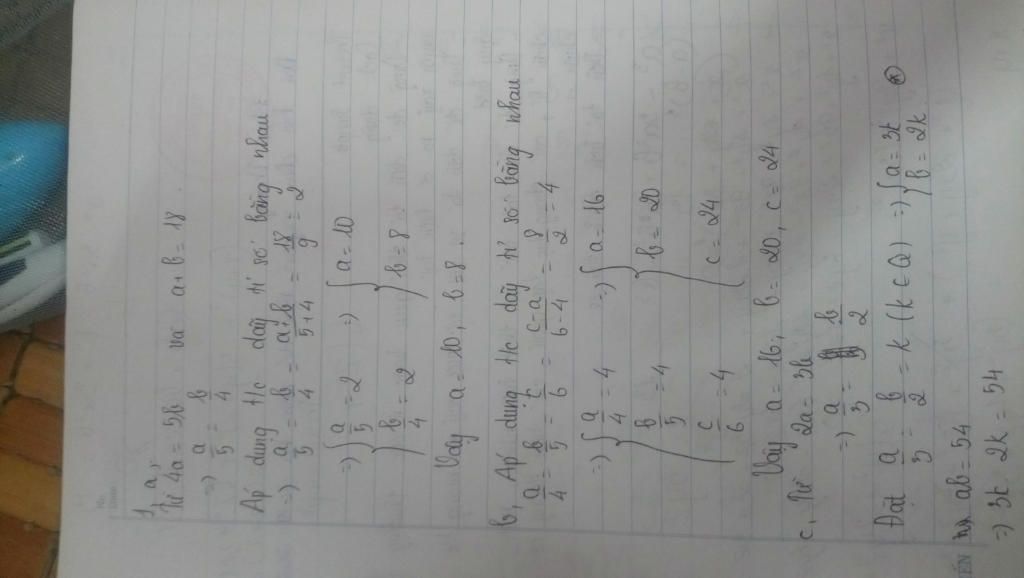 1, a,
Từ 4a = 5b và a + b = 18
=> a/5 = b/4
Áp dụng t/c dãy tỉ số bằng nhau:
=> a/5 = b/4 = a+b/5+4 = 18/9 = 2
=> { a/5 = 2 => { a = 10
b/4 = 2 b = 8
Vậy a = 10, b = 8.
b, Áp dụng t/c dãy tỉ số bằng nhau
a/4 = b/5 = c/6 = c-a/6-4 = 8/2 = 4
=> { a/4 = 4 => { a = 16
b/5 = 4 b = 20
c/6 = 4 c = 24
Vậy a = 16, b = 20, c = 24
c, Từ 2a = 3b
=> a/3 = b/2
Đặt a/3 = b/2 = k (k ∈ Q) => { a = 3k
b = 2k (*)
ab = 54
=> 3k. 2k = 54